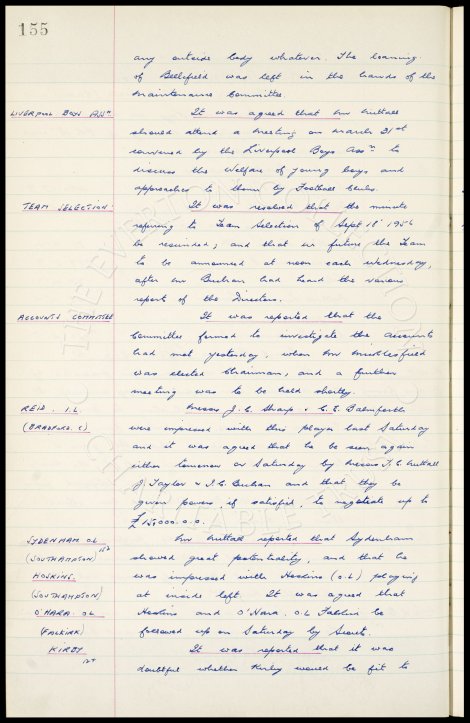 155
any outside body whatever. The leasing
of Bellefield was left in the hands of the
Maintenance Committee
LIVERPOOL BOYS ASSN.
It was agreed that Mr Nuttall
should attend a meeting on March 21st
convened by the Liverpool Boys Assn to
discuss the Welfare of young boys and
approaches to them by Football Clubs.
TEAM SELECTION.
It was resolved that the minute
referring to Team Selection of Sept 18 1956
be rescinded; and that in future the Team
to be announced at noon each Wednesday,
after Mr Buchan had heard the various
report of the Directors.
ACCOUNTS COMMITTEE
It was reported that the
Committee formed to investigate the accounts
had met yesterday, when Mr Micklesfield
was elected Chairman, and a further
meeting was to be held shortly.
REID. I.L.
(BRADFORD. C)
Messrs J. C. Sharp & C. E. Balmforth
were impressed with this player last Saturday
and it was agreed that he be seen again
either tomorrow or Saturday by Messrs F. C. Nuttall
J. Taylor & I. C. Buchan and that they be
given powers, if satisfied, to negotiate up to
£15000.0.0.
SYDENHAM O.L
(SOUTHAMPTON)
HOSKINS.
(SOUTHAMPTON)
O'HARA. O.L
(FALKIRK)
Mr Nuttall reported that Sydenham
showed great potentiality, and that he
was impressed with Hoskins (O.L) playing
at inside left. It was agreed that
Hoskins and O'Hara. O.L Falkirk be
followed up on Saturday by Scouts.
KIRBY
It was reported that it was
doubtful whether Kirby would be fit to